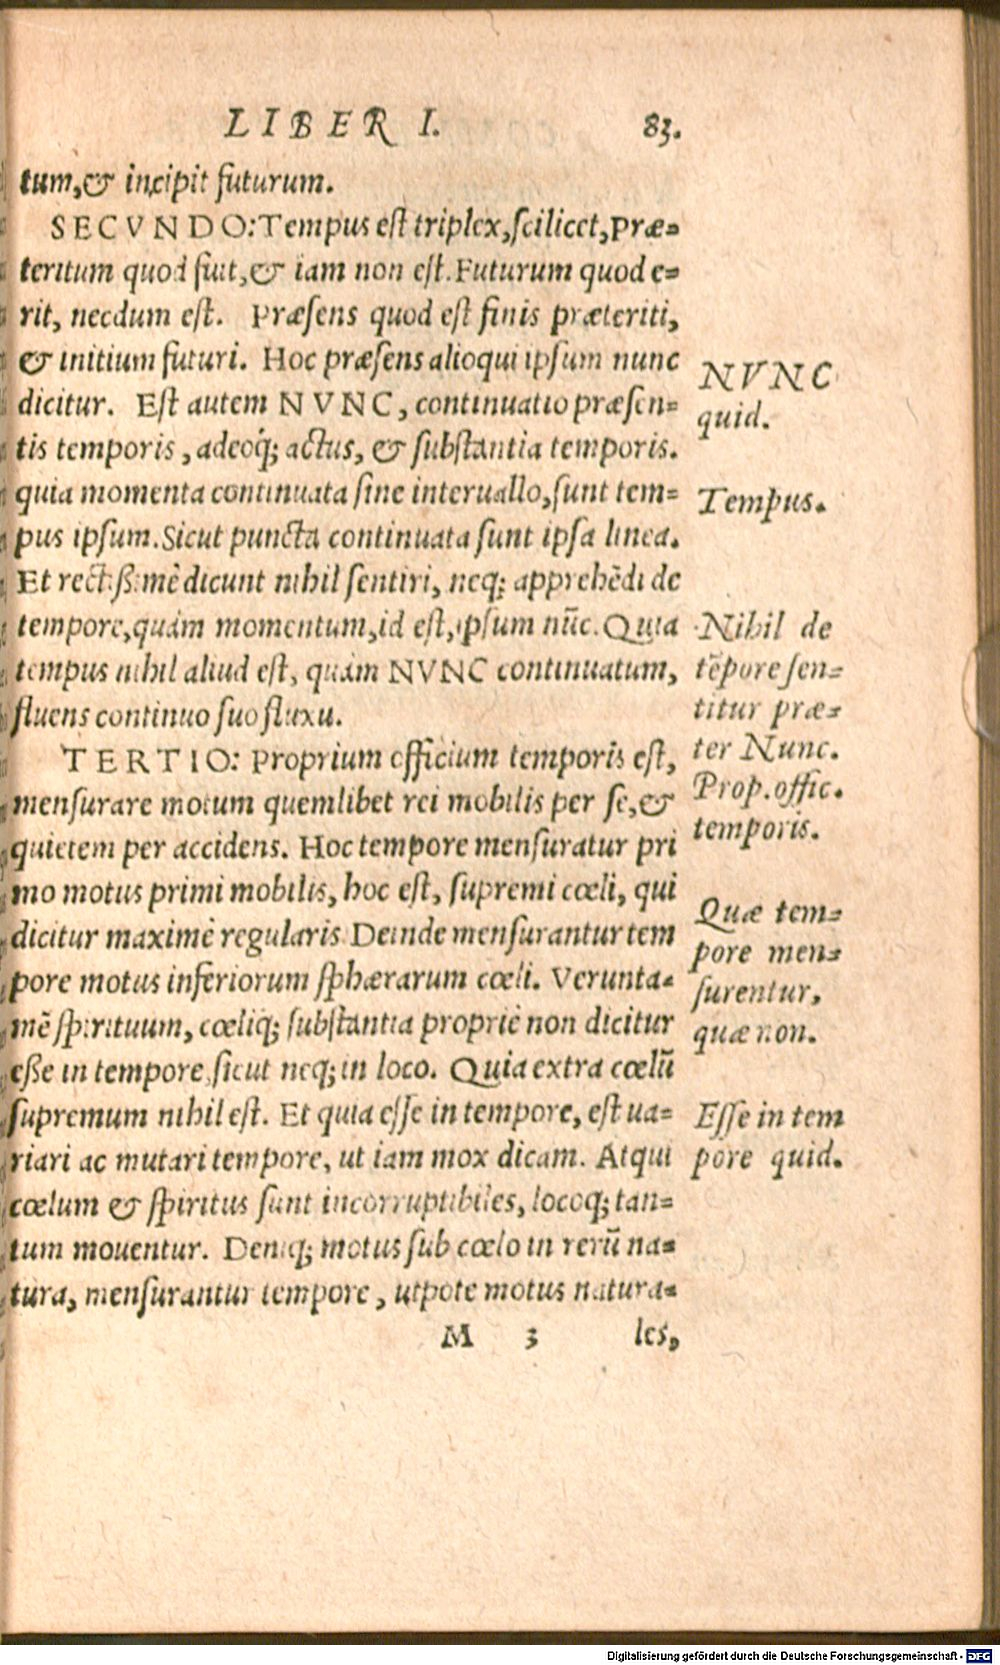 LIBER I. 83.
tum,& incipit futurum.
SECVNDO: Tempus est triplex, scilicet, Præ-
teritum quod fuit,& iam non est. Futurum quod e-
rit, necdum est. Præsens quod est finis præteriti,
& initium futuri. Hoc præsens alioqui ipsum nunc
dicitur. Est autem NVNC, continuatio præsen-
tis temporis, adeoq́; actus, & substantia temporis.
quia momenta continuata sine interuallo, sunt tem-
pus ipsum. Sicut puncta continuata sunt ipsa linea.
Et rectißimè dicunt nihil sentiri, neq; apprehẽdi de
tempore, quàm momentum, id est, ipsum nũc. Quia
tempus nihil aliud est, quàm NVNC continuatum,
fluens continuo suo fluxu.
TERTIO: Proprium officium temporis est,
mensurare motum quemlibet rei mobilis per se,&
quietem per accidens. Hoc tempore mensuratur pri
mo motus primi mobilis, hoc est, supremi cœli, qui
dicitur maximè regularis. Deinde mensurantur tem
pore motus inferiorum sphærarum cœli. Verunta-
mẽ spirituum, cœliq; substantia propriè non dicitur
eße in tempore, sicut neq; in loco. Quia extra cœlũ
supremum nihil est. Et quia esse in tempore, est ua-
riari ac mutari tempore, ut iam mox dicam. Atqui
cœlum & spiritus sunt incorruptibiles, locoq; tan-
tum mouentur. Deniq; motus sub cœlo in rerũ na-
tura, mensurantur tempore, utpote motus natura-
M 3 les,
NVNC
quid.
Tempus.
Nihil de
tẽpore sen-
titur præ-
ter Nunc.
Prop. offic.
temporis.
Quæ tem-
pore men-
surentur,
quæ non.
Esse in tem
pore quid.
Digitalisierung gefördert durch die Deutsche Forschungsgemeinschaft - DFG